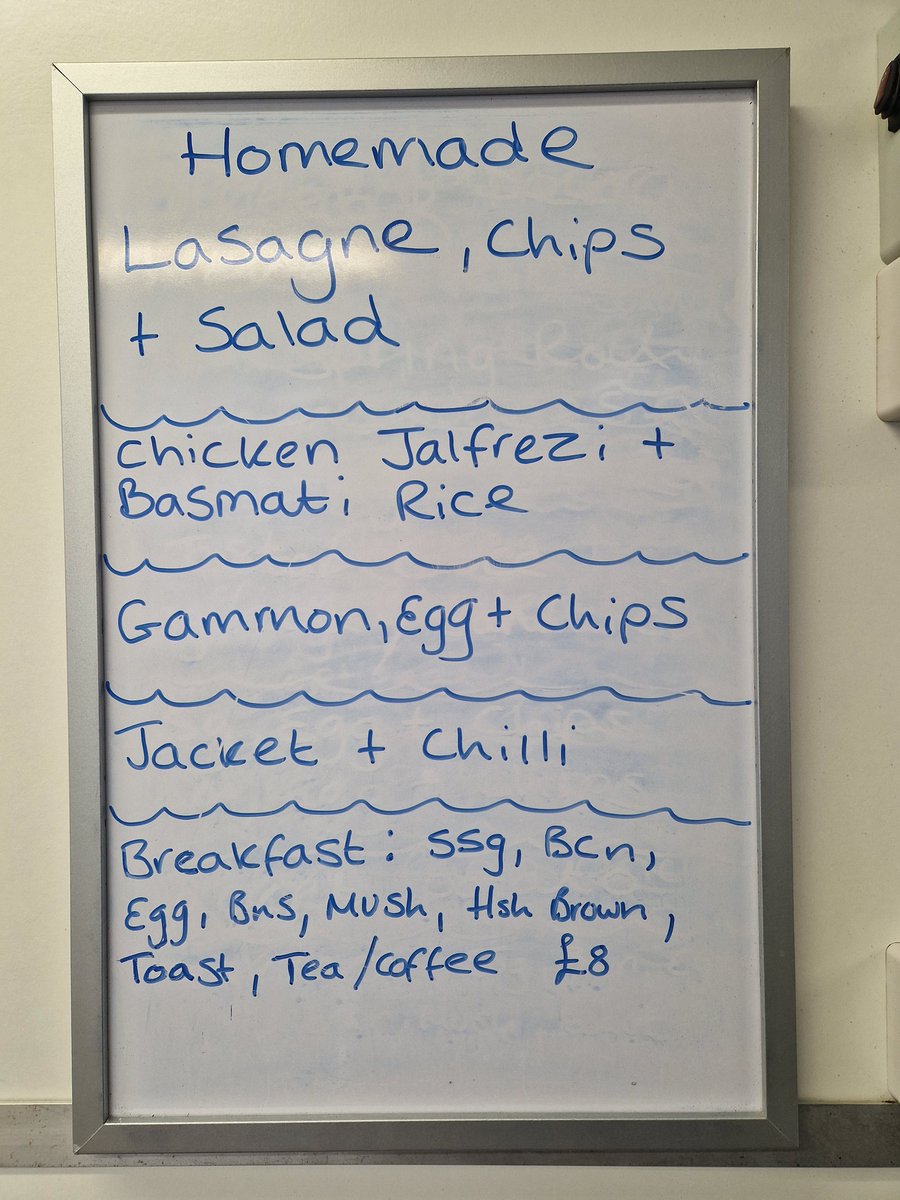 Homemade
Lasagne, Chips
+ Salad
Chicken Jalfrezi +
Basmati Rice
Gammon, Egg + Chips
Jacket + Chilli
Breakfast: SSg, Bcn,
Egg, Bns, Mush, Hsh Brown,
Toast, Tea/Coffee £8